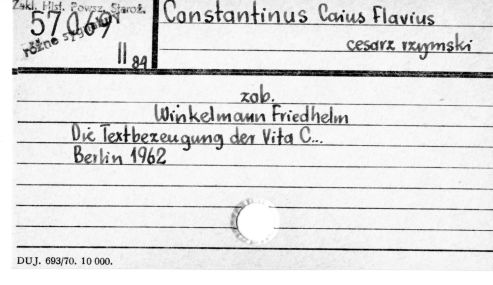 Zakł. Hist. Powsz. Staroż.
różne sygnatury
II 84
Constantinus Caius Flavius
cesarz rzymski
zob.
Winkelmann Friedhelm
Die Textbezeugung der Vita C...
Berlin 1962
DUJ. 693/70. 10 000.